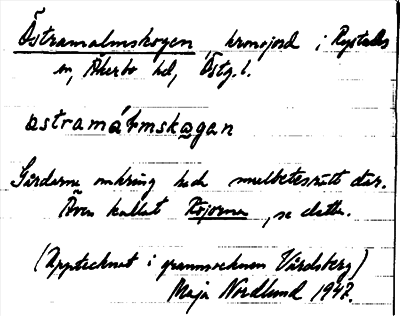 Östramalmskogen, kronojord i Rystads
sn, Åkerbo hd, Östg. l.
ostramármskogan
Gårdarna omkring hade mulbetesrätt där.
Även kallat Kojorna, se detta.
(Upptecknat i grannsocknen Vårdsberg)
Maja Nordlund 1947.